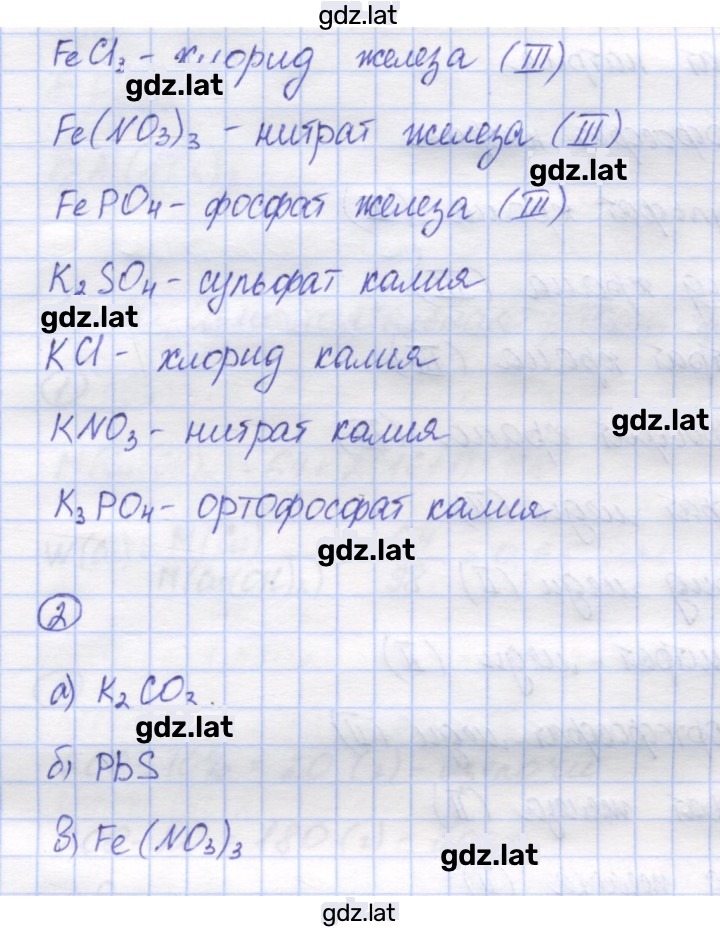 gdz.lat
FeCl₃ - хлорид железа (III)
gdz.lat
Fe(NO₃)₃ - нитрат железа (III)
gdz.lat
FePO₄ - фосфат железа (III)
K₂SO₄ - сульфат калия
gdz.lat
KCl - хлорид калия
gdz.lat
KNO₃ - нитрат калия
K₃PO₄ - ортофосфат калия
gdz.lat
2
а) K₂CO₂
gdz.lat
б) PbS
в) Fe(NO₃)₃
gdz.lat
gdz.lat